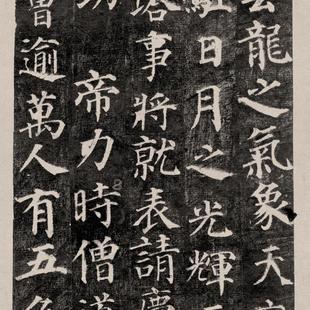 雲龍之氣象天
駐日月之光輝
塔事將就表請慶
功 帝力時僧道
會逾萬人有五色